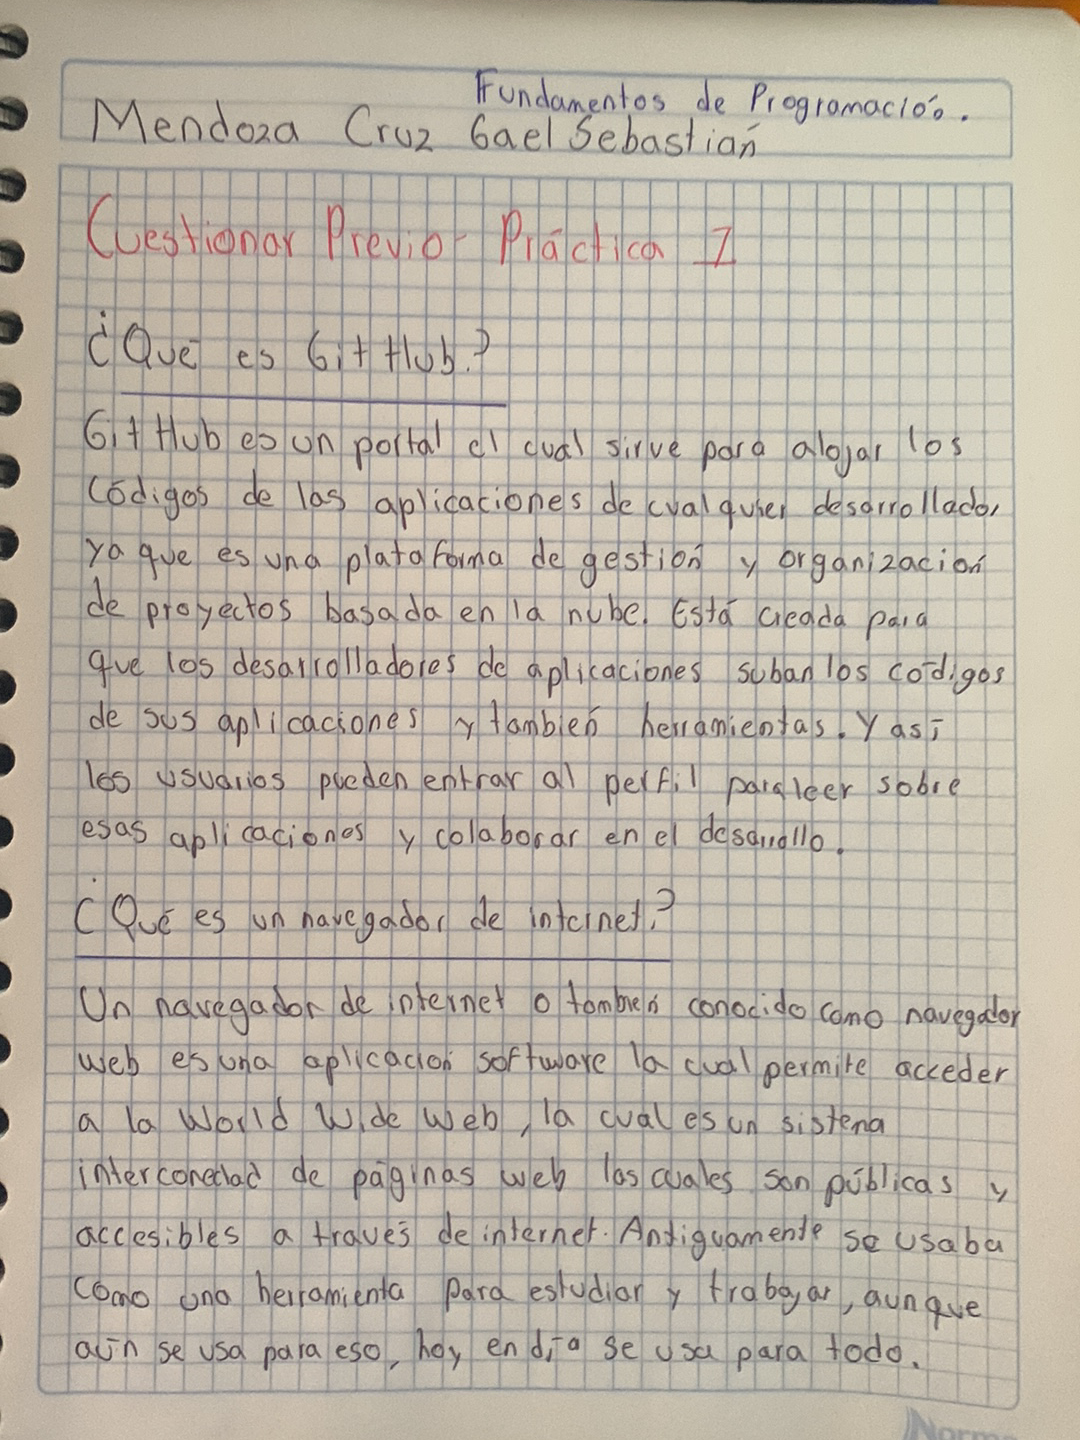 Fundamentos de Programación.
Mendoza Cruz Gael Sebastián
Cuestionar Previo - Práctica 1
¿Qué es GitHub?
GitHub es un portal el cual sirve para alojar los
Códigos de las aplicaciones de cualquier desarrollador
ya que es una plataforma de gestión y organización
de proyectos basada en la nube. Está creada para
que los desarrolladores de aplicaciones suban los códigos
de sus aplicaciones y también herramientas. Y así
los usuarios pueden entrar al perfil para leer sobre
esas aplicaciones y colaborar en el desarrollo.
¿Qué es un navegador de internet?
Un navegador de internet o también conocido como navegador
web es una aplicación software la cual permite acceder
a la World Wide Web, la cual es un sistena
interconectad de páginas web las cuales son públicas y
accesibles a través de internet. Antiguamente se usaba
como una herramienta para estudiar y trabajar, aunque
aún se usa para eso, hoy en día se usa para todo.
Norma